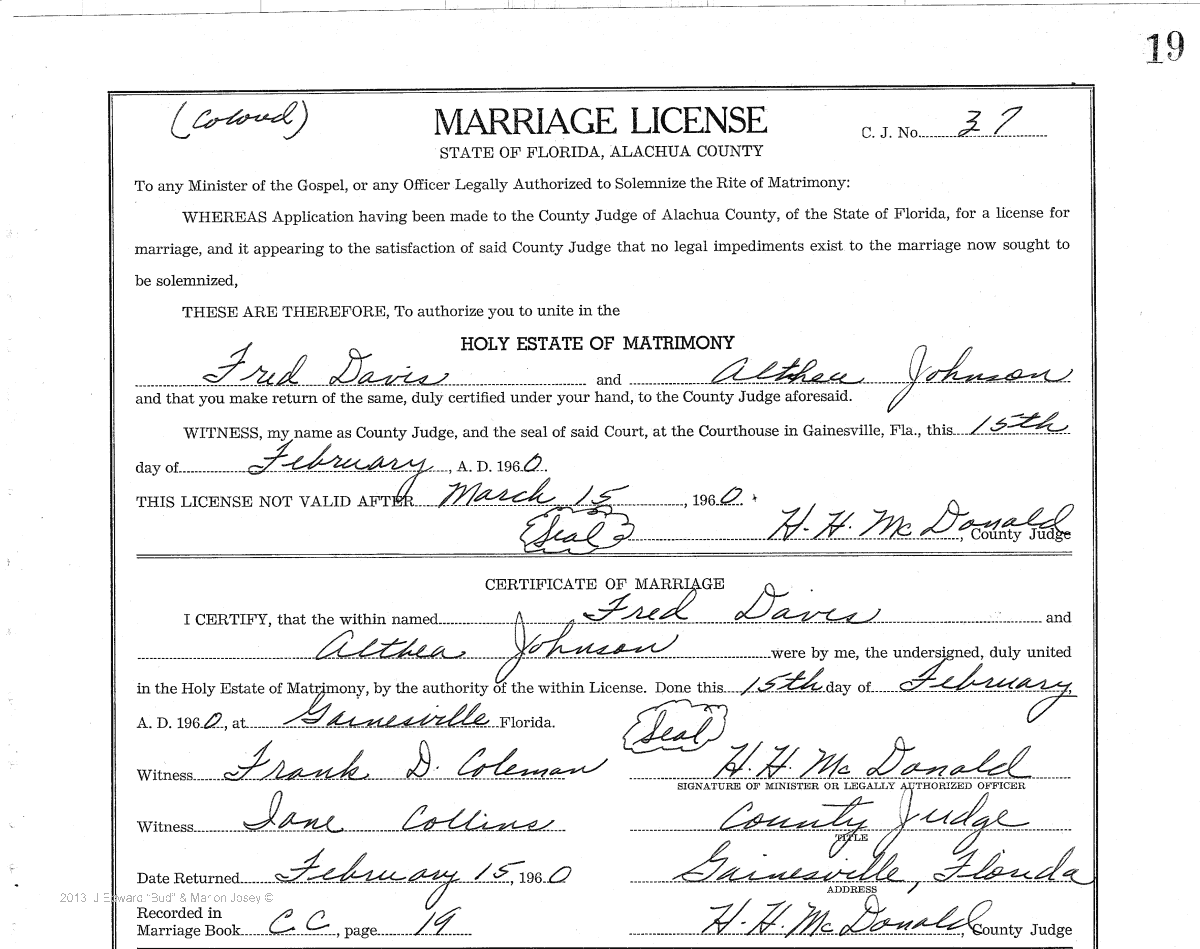 19
(Colored) MARRIAGE LICENSE C. J. No. 37
STATE OF FLORIDA, ALACHUA COUNTY
To any Minister of the Gospel, or any Officer Legally Authorized to Solemnize the Rite of Matrimony:
WHEREAS Application having been made to the County Judge of Alachua County, of the State of Florida, for a license for
marriage, and it appearing to the satisfaction of said County Judge that no legal impediments exist to the marriage now sought to
be solemnized,
THESE ARE THEREFORE, To authorize you to unite in the
HOLY ESTATE OF MATRIMONY
Fred Davis and Althea Johnson
and that you make return of the same, duly certified under your hand, to the County Judge aforesaid.
WITNESS, my name as County Judge, and the seal of said Court, at the Courthouse in Gainesville, Fla., this 15th
day of February, A. D. 1960.
THIS LICENSE NOT VALID AFTER March 15, 1960.
Seal H. H. McDonald, County Judge
CERTIFICATE OF MARRIAGE
I CERTIFY, that the within named Fred Davis and
Althea Johnson were by me, the undersigned, duly united
in the Holy Estate of Matrimony, by the authority of the within License. Done this 15th day of February,
A. D. 1960, at Gainesville Florida. Seal
Witness Frank D. Coleman H. H. McDonald
SIGNATURE OF MINISTER OR LEGALLY AUTHORIZED OFFICER
Witness Jane Collins County Judge
TITLE
Date Returned February 15, 1960 Gainesville, Florida
ADDRESS
2013 J Edward "Bud" & Marion Josey ©
Recorded in
Marriage Book C.C., page 19 H. H. McDonald, County Judge